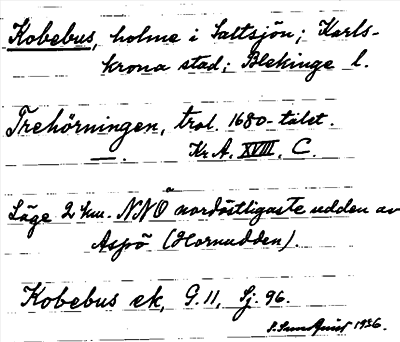 Kobebus, holme i Saltsjön; Karls-
krona stad; Blekinge l.
Trehörningen, trol. 1680-talet.
— . Kr. A. XVIII, C.
Läge 2 km. NNO å nordöstligaste udden av
Aspö (Hornudden).
Kobebus ek, G. 11, Sj. 96.
S. Sundquist 1926.